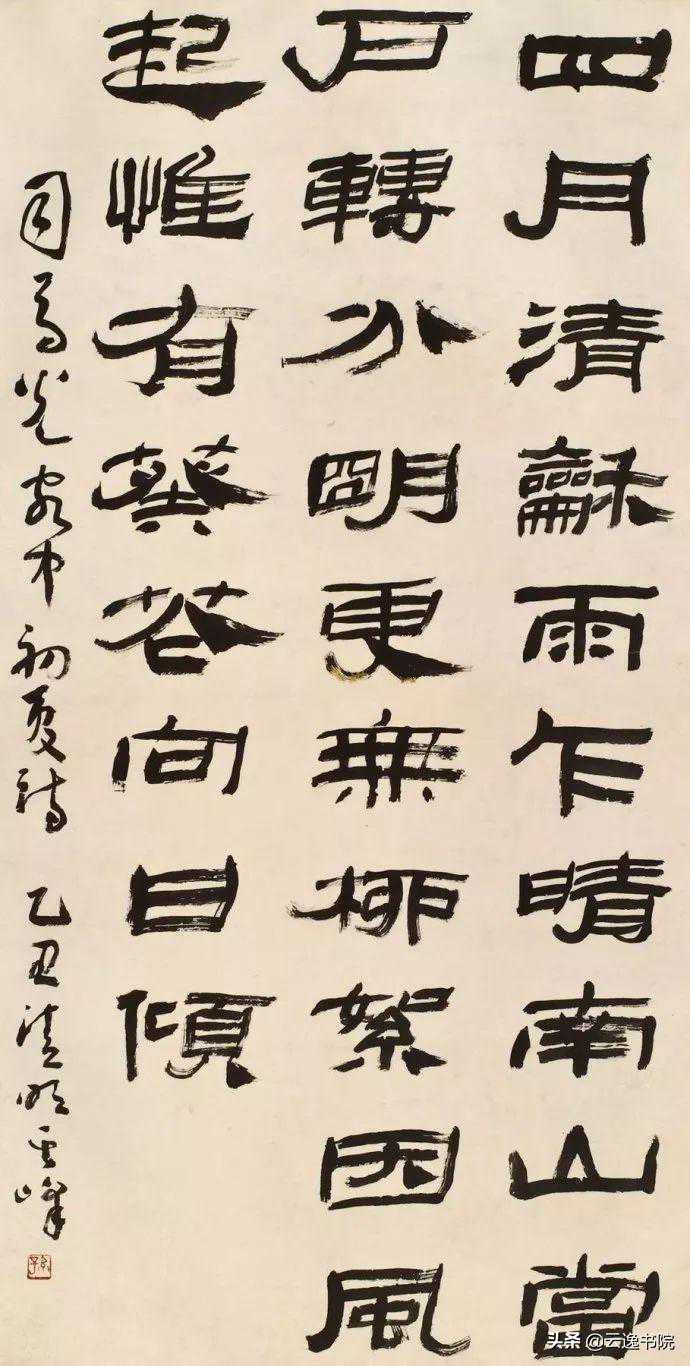 四月清龢雨乍晴南山當
戶轉分明更無柳絮因風
起惟有葵花向日傾
司馬光客中初夏詩 乙丑清明雲峰
孫
头条@云逸书院